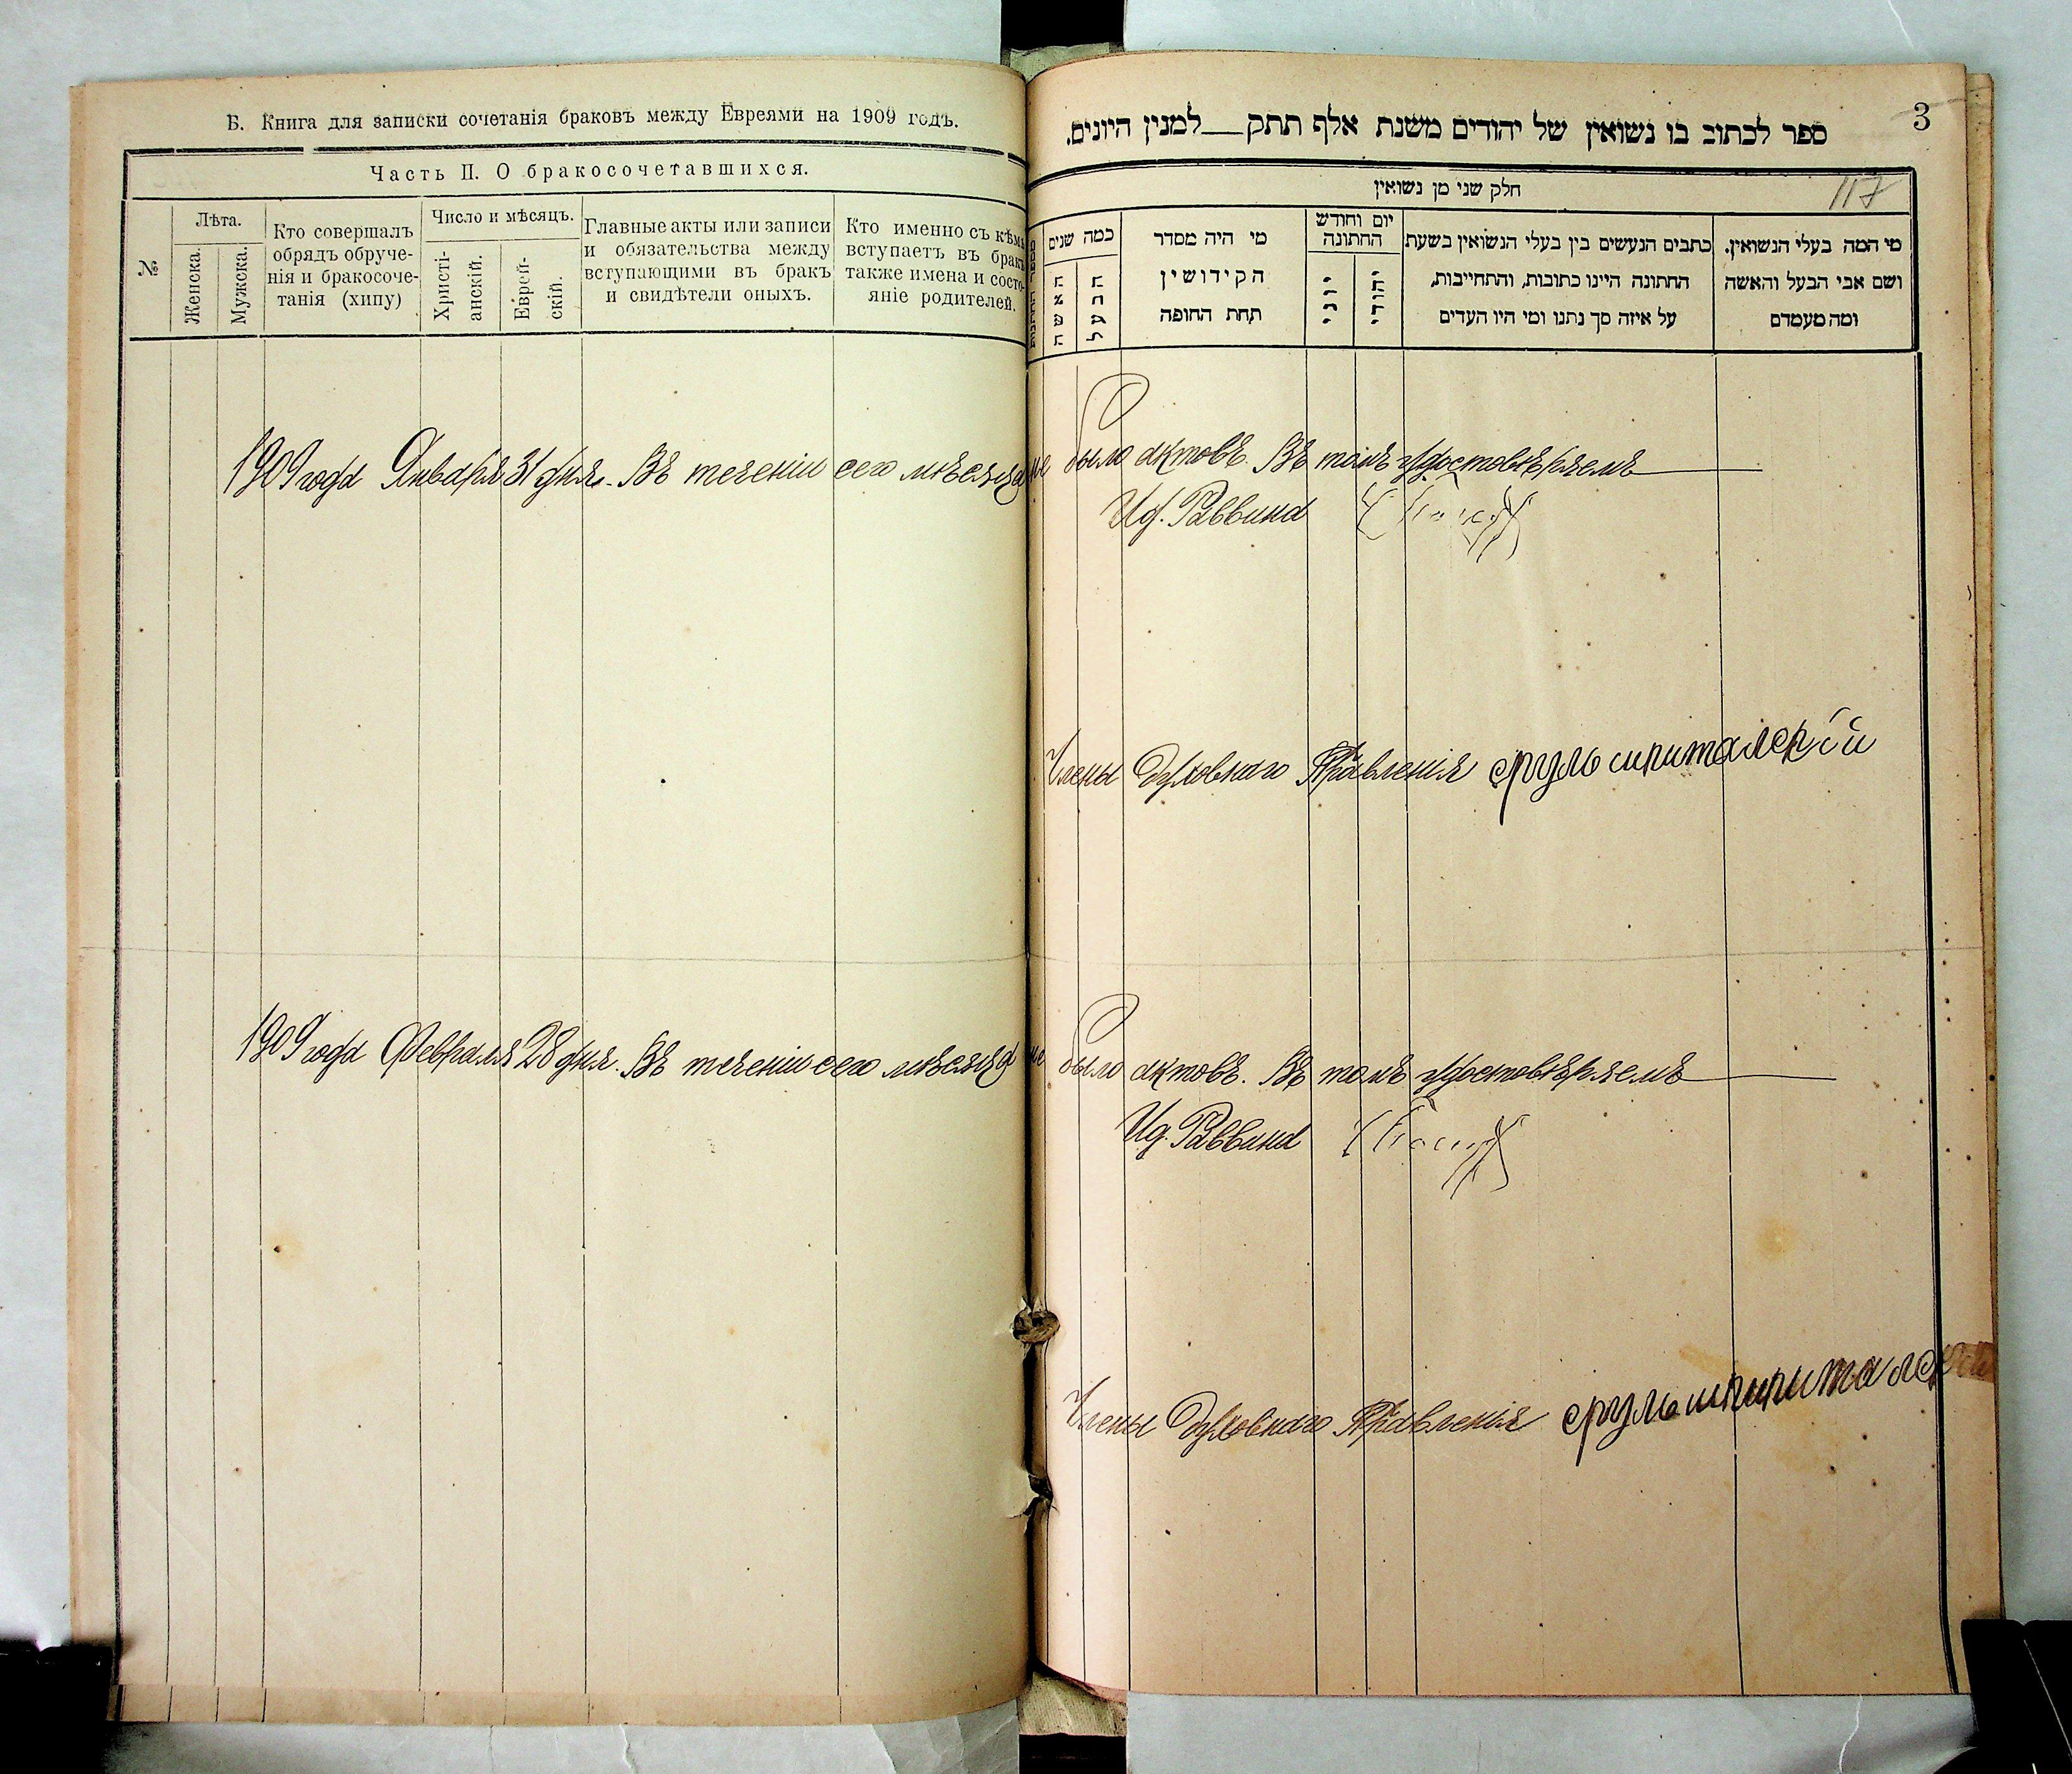 Б. Книга для записки сочетанія браковъ между Евреями на 1909 годъ.
Часть II. О бракосочетавшихся.
№
Лѣта.
Женска.
Мужска.
Кто совершалъ
обрядъ обруче-
нія и бракосоче-
танія (хипу)
Число и мѣсяцъ.
Христі-
анскій.
Еврей-
скій.
Главные акты или записи
и обязательства между
вступающими въ бракъ
и свидѣтели оныхъ.
Кто именно съ кѣмъ
вступаетъ въ бракъ
также имена и состо-
яніе родителей.
3
ספר לכתוב בו נשואין של יהודים משנת אלף תתק__למנין היונים.
117
חלק שני מן נשואין
כמה שנים
האשה
הבעל
מי היה מסדר
הקידושין
תחת החופה
יום וחודש
החתונה
יוני
יהודי
כתבים הנעשים בין בעלי הנשואין בשעת
החתונה היינו כתובות, והתחייבות,
על איזה סך נתנו ומי היו העדים
מי המה בעלי הנשואין.
ושם אבי הבעל והאשה
ומה מעמדם
1909 года Января 31 дня. Въ теченіи сего мѣсяца не было актовъ. Въ томъ удостовѣряемъ
Ид. Раввина
Члены Духовнаго Правленія сруль шпиталскій
1909 года Февраля 28 дня. Въ теченіи сего мѣсяца не было актовъ. Въ томъ удостовѣряемъ
Ид. Раввина
Члены Духовнаго Правленія сруль